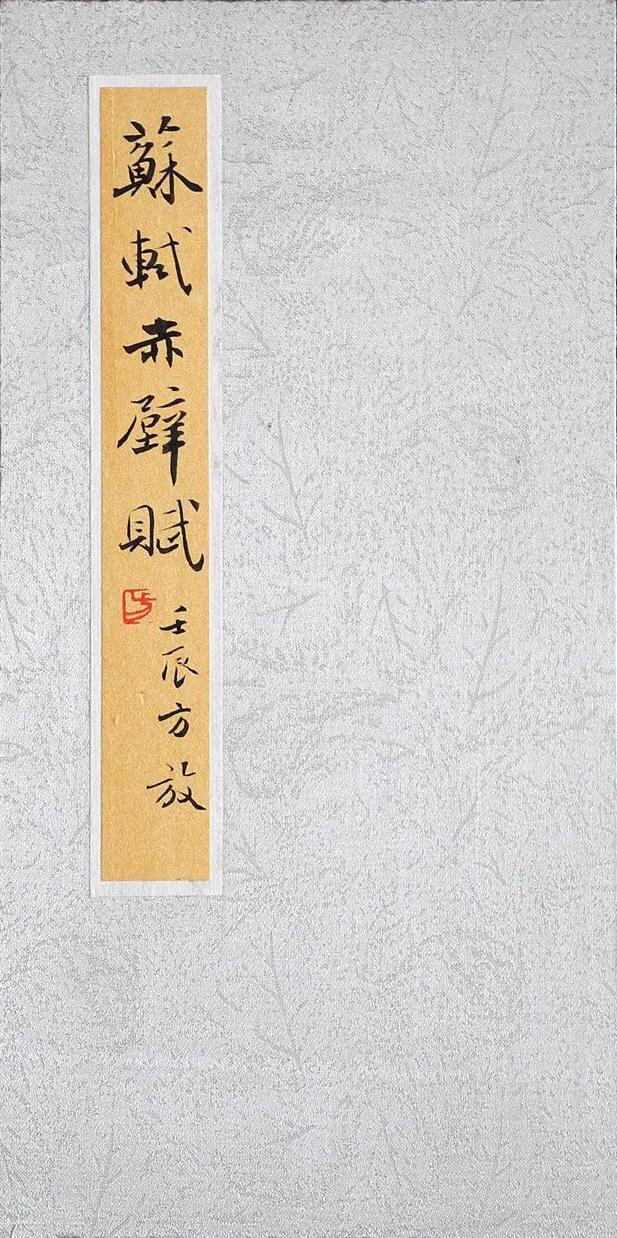 蘇軾赤壁賦
壬辰方放